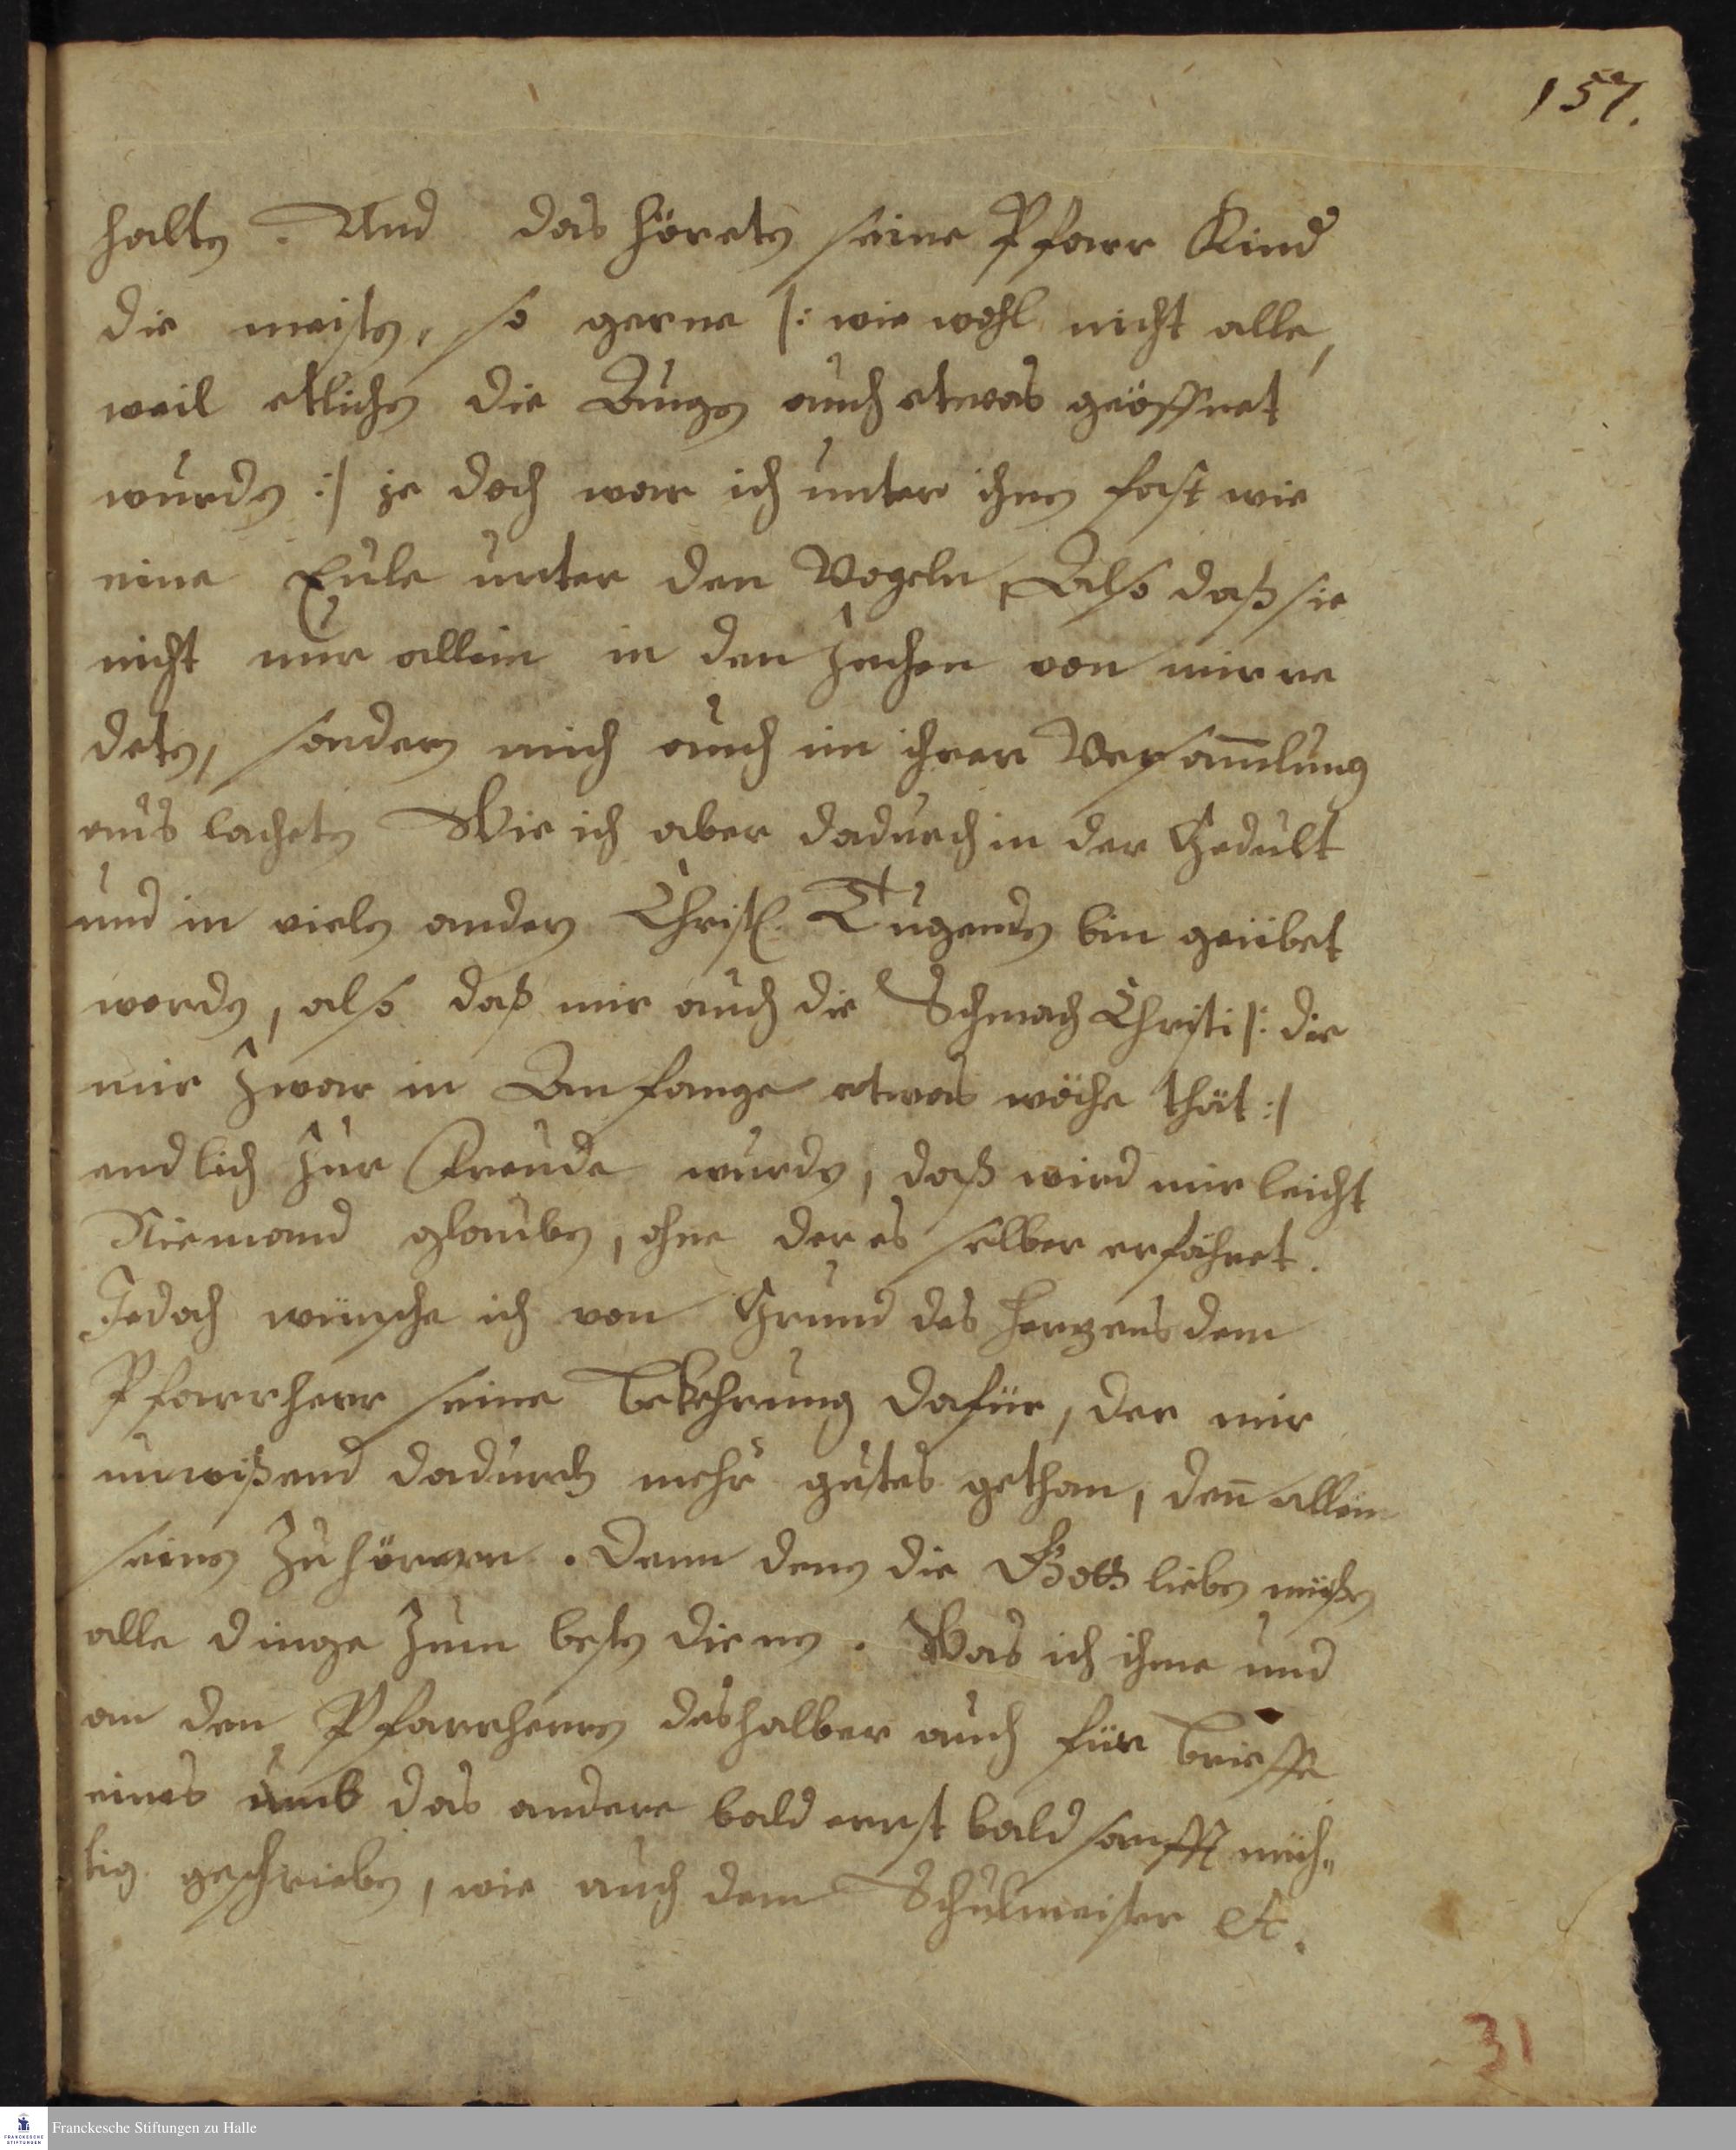 157.
halten. Und das höreten seine Pfarr Kind
die meisten, so gerne /: wie wohl nicht alle,
weil etlichen die Augen auch etwas geöffnet
wurden :/ je doch war ich unter ihnen fast wie
eine Eule unter den Vogeln, Also daß sie
nicht nur allein in den Zechen von mir re
deten, sondern mich auch in ihrer Versam̅lung
aus lacheten Wie ich aber dadurch in der Gedult
und in vielen andern Christl. Tugenden bin geübet
worden, also daß mir auch die Schmach Christi /: die
mir zwar in Anfange etwas wöhe thät :/
endlich zur Freude wurden, daß wird mir leicht
Niemand glauben, ohne der es selber erfähret.
Jedoch wünsche ich von Grund des Hertzens dem
Pfarrherr seine Bekehrung dafür, der mir
unwißend dadurch mehr gutes gethan, den̅ allen
seinen Zuhörern. Denn denen die Gott lieben müßen
alle dinge zum besten dienen. Was ich ihme und
an den Pfarrherrn deshalber auch für Brieffe
eines umb das andere bald ernst bald sanfft müh-
tig geschrieben, wie auch dem Schulmeister etc.
31
Franckesche Stiftungen zu Halle
FRANCKESCHE
STIFTUNGEN